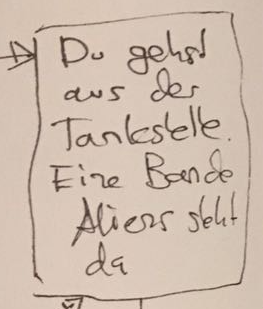 Du gehst
aus der
Tankstelle.
Eine Bande
Aliens steht
da